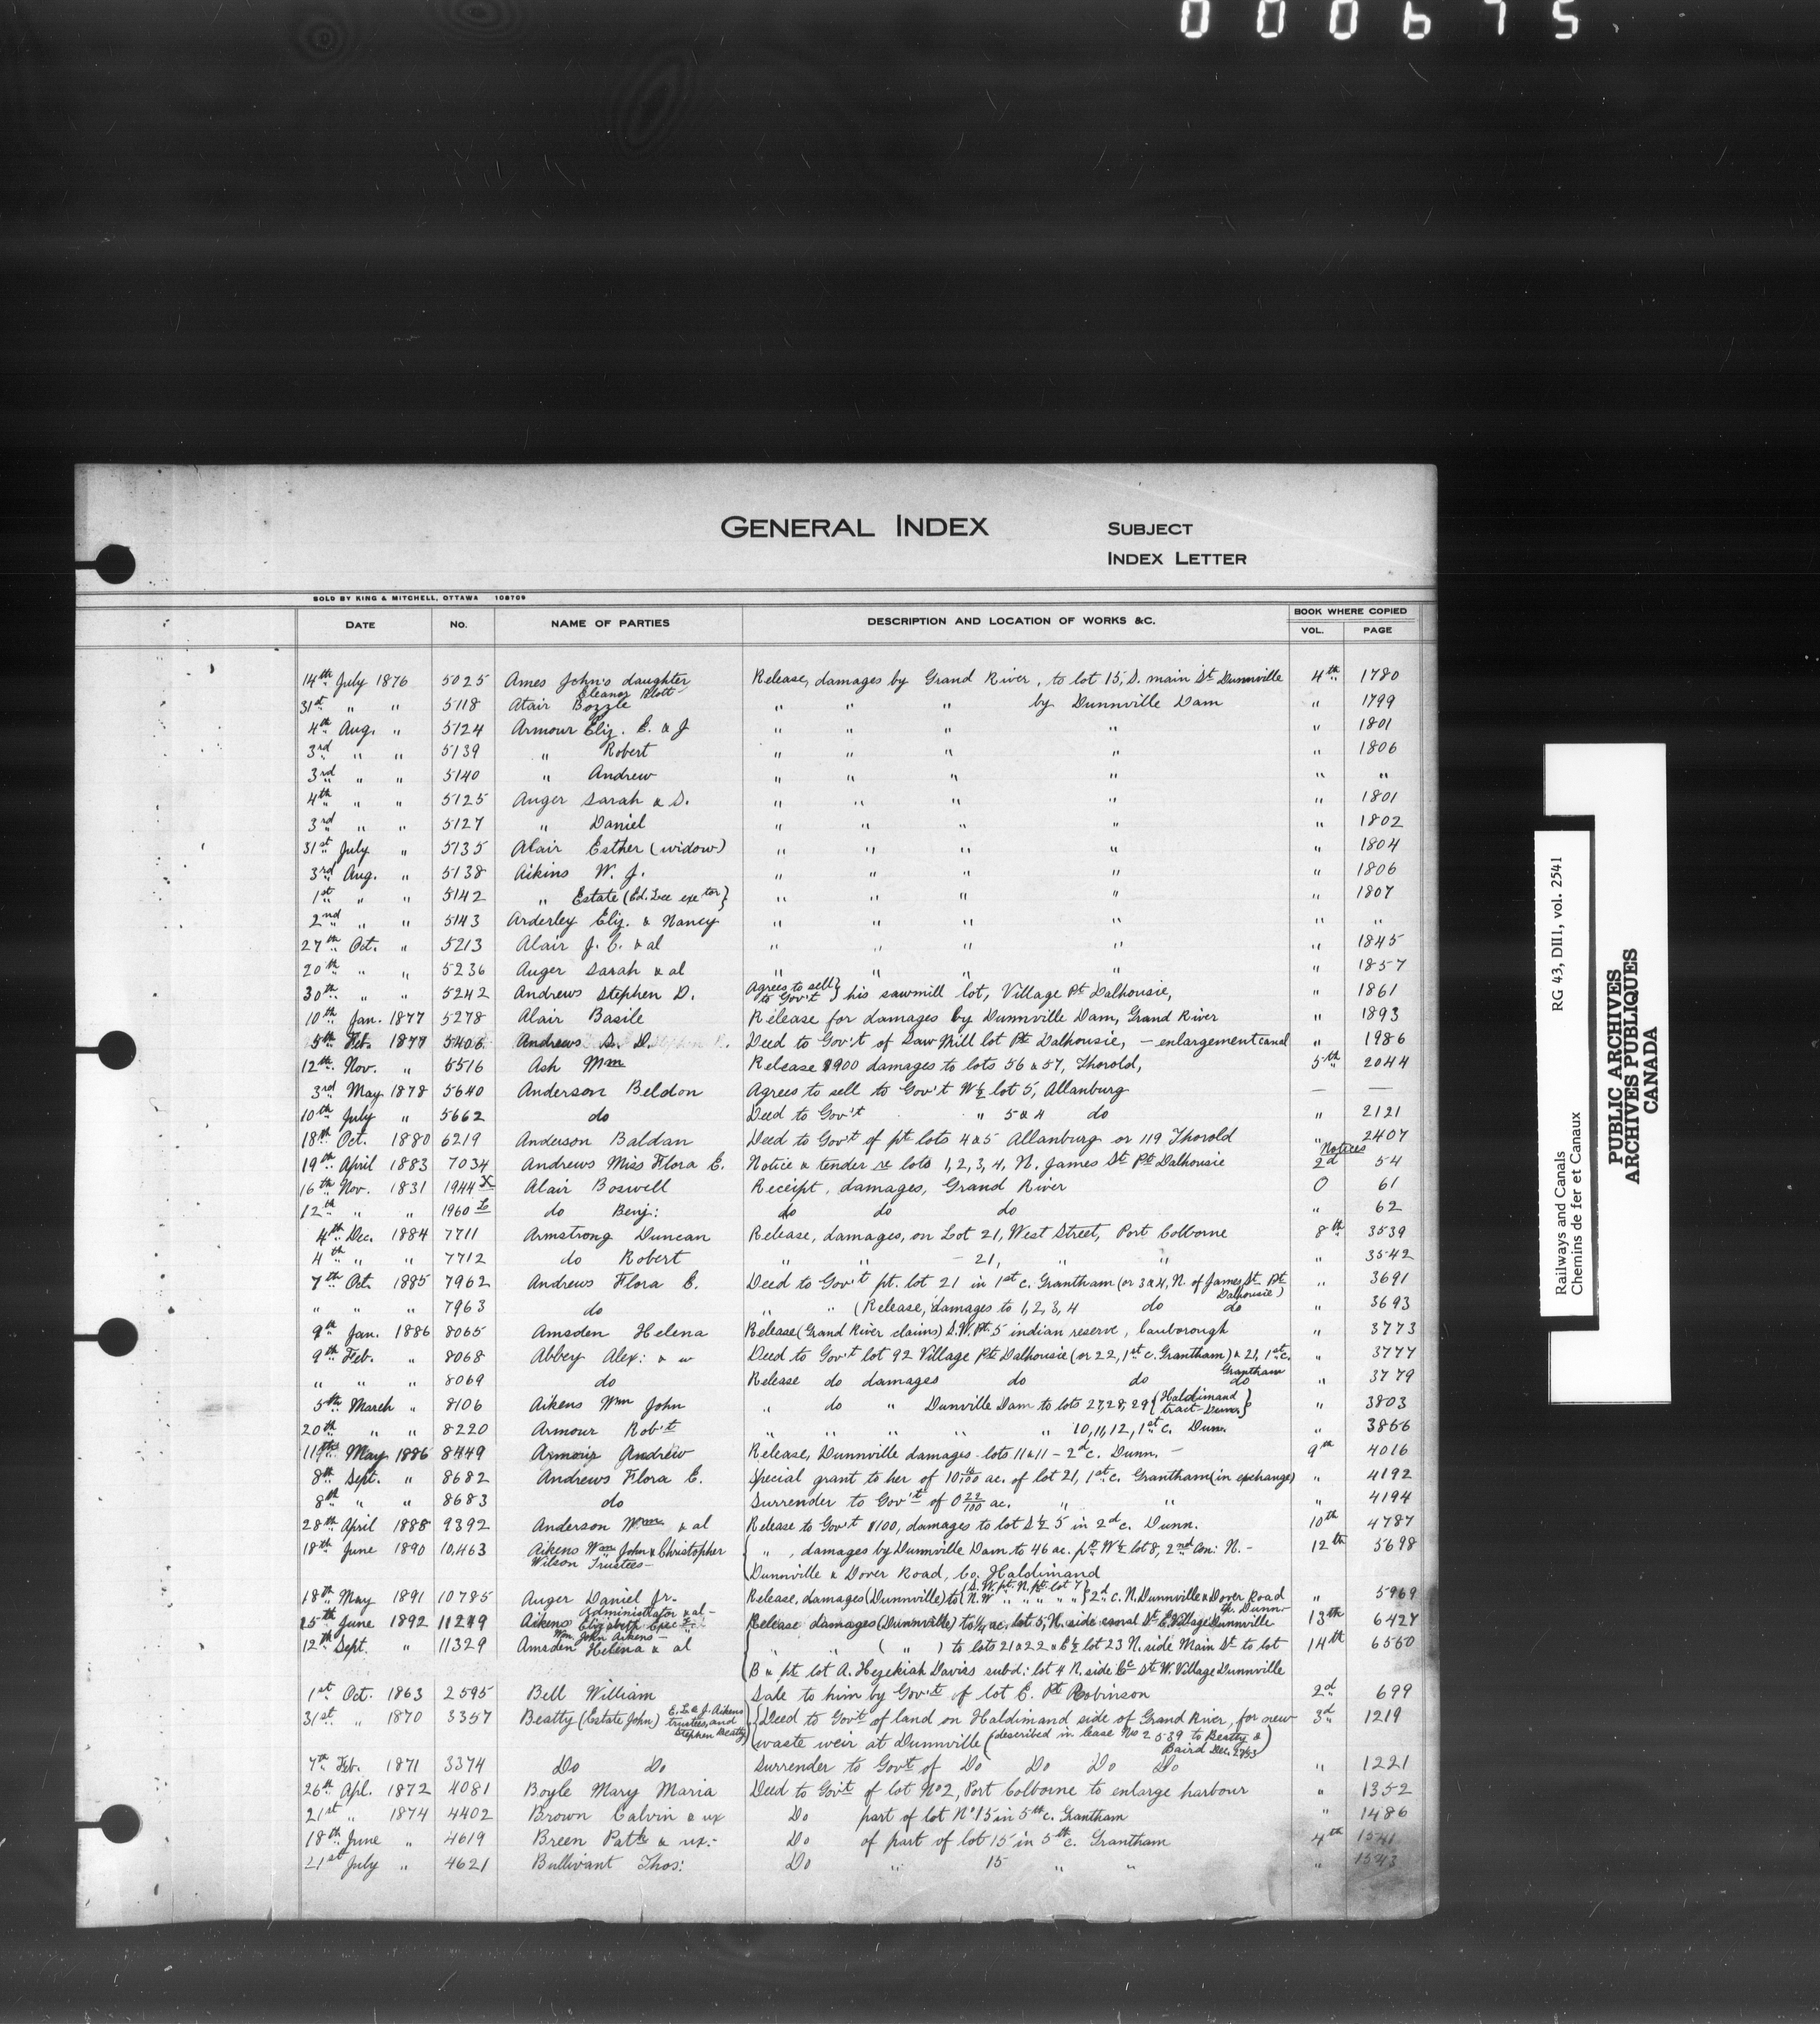 000675
GENERAL INDEX
SUBJECT
INDEX LETTER
SOLD BY KING & MITCHELL, OTTAWA 108709
DATE No. NAME OF PARTIES DESCRIPTION AND LOCATION OF WORKS &C. BOOK WHERE COPIED
VOL. PAGE
14th July 1876 5025 Ames John's daughter Release, damages by Grand River, to lot 15, S. main St Dunnville 4th 1780
Eleanor Plott
31st " " 5118 Atair Bozzle " " " by Dunnville Dam " 1799
4th Aug. " 5124 Armour Eliz. E. & J " " " " " 1801
3rd " " 5139 " Robert " " " " " 1806
3rd " " 5140 " Andrew " " " " " "
4th " " 5125 Auger Sarah & S. " " " " " 1801
3rd " " 5127 " Daniel " " " " " 1802
31st July " 5135 Alair Esther (widow) " " " " " 1804
3rd Aug. " 5138 Aikins W. J. " " " " " 1806
1st " " 5142 " Estate (Ed. Lee exetor} " " " " " 1807
2nd " " 5143 Arderley Eliz. & Nancy " " " " " "
27th Oct. " 5213 Alair J. C. & al " " " " " 1845
20th " " 5236 Auger Sarah & al " " " " " 1857
30th " " 5242 Andrews Stephen D. Agrees to sell to Gov't } his sawmill lot, Village Pt Dalhousie, " 1861
10th Jan. 1877 5278 Alair Basile Release for damages by Dunnville Dam, Grand River " 1893
5th Feb. 1877 5406 Andrews S. D. Deed to Gov't of Saw Mill lot Pt Dalhousie, - enlargement canal " 1986
12th Nov. " 5516 Ash Wm Release $900 damages to lots 56 & 57, Thorold, 5th 2044
3rd May 1878 5640 Anderson Beldon Agrees to sell to Gov't W½ lot 5, Allanburg — —
10th July " 5662 do Deed to Gov't " 5 & 4 do " 2121
18th Oct. 1880 6219 Anderson Baldan Deed to Gov't of pt lots 4 & 5 Allanburg or 119 Thorold " 2407
19th April 1883 7034 Andrews Miss Flora E. Notice & tender re lots 1, 2, 3, 4, N. James St Pt Dalhousie Notices 2d 54
16th Nov. 1831 1944 X Alair Boswell Receipt, damages, Grand River O 61
12th " " 1960 do Benj: do do do " 62
4th Dec. 1884 7711 Armstrong Duncan Release, damages, on Lot 21, West Street, Port Colborne 8th 3539
4th " " 7712 do Robert " " - 21, " " " 3542
7th Oct. 1885 7962 Andrews Flora E. Deed to Gov't pt. lot 21 in 1st c. Grantham (or 3 & 4, N. of James St. Pt Dalhousie) " 3691
" " " 7963 do " " (Release, damages to 1, 2, 3, 4 do do " 3693
9th Jan. 1886 8065 Amsden Helena Release (Grand River claims) S.W. Pt. 5 indian reserve, Canborough " 3773
9th Feb. " 8068 Abbey Alex: & w Deed to Gov't lot 92 Village Pt Dalhousie (or 22, 1st c. Grantham) & 21, 1st c. Grantham " 3777
" " " 8069 do Release do damages do do do " 3779
5th March " 8106 Aikens Wm John " do " Dunville Dam to lots 27, 28, 29 {Haldimand tract Dunn} " 3803
20th " " 8220 Armour Rob't " " " " " 10, 11, 12, 1st c. Dunn. " 3866
11th May 1886 8449 Armour Andrew Release, Dunnville damages - lots 11 & 11 - 2d c. Dunn. - 9th 4016
8th Sept. " 8682 Andrews Flora E. Special grant to her of ac. of lot 21, 1st c. Grantham (in exchange) " 4192
8th " " 8683 do Surrender to Gov't of 0 22/100 ac. " " " 4194
28th April 1888 9392 Anderson Wm & al Release to Gov't $100, damages to lot S½ 5 in 2d c. Dunn. 10th 4787
18th June 1890 10,463 Aikens Wm John & Christopher { " , damages by Dunnville Dam to 46 ac. pt W½ lot 8, 2nd Con: N. - 12th 5698
Wilson Trustees - Dunnville & Dover Road, Co. Haldimand
18th May 1891 10785 Auger Daniel Jr. Release, damages (Dunnville) to {S.W. pt. N. pt. lot 7 N.W " " " " "} 2d c. N. Dunnville & Dover Road " 5969
Administrator & al -
15th June 1892 11249 Aikens Elizabeth Release damages (Dunnville) to ¼ ac. lot 5, N. side canal St E. Village Dunnville 13th 6427
Wm. John Aikens -
12th Sept. " 11329 Amsden Helena & al { " " ( " ) to lots 21 & 22 & E½ lot 23 N. side Main St to lot 14th 6560
B & pt lot A. Hezekiah Davis's subd: lot 4 N. side St W. Village Dunnville
1st Oct. 1863 2595 Bell William Sale to him by Gov't of lot C. Pt Robinson 2d 699
31st " 1870 3357 Beatty (Estate John) E. L. & J. Aikens trustees, and Stephen Beatty } {Deed to Gov't of land on Haldimand side of Grand River, for new 3d 1219
waste weir at Dunnville (described in lease No 2539 to Beatty & Baird Dec. )
7th Feb. 1871 3374 Do Do Surrender to Gov't of Do Do Do Do " 1221
26th Apl. 1872 4081 Boyle Mary Maria Deed to Gov't of lot No 2, Port Colborne to enlarge harbour " 1352
21st " 1874 4402 Brown Calvin & ux Do part of lot No 15 in 5th c. Grantham " 1486
18th June " 4619 Breen Patk & ux: Do of part of lot 15 in 5th c. Grantham 4th 1541
21st July " 4621 Bullivant Thos: Do " 15 " " " 1543
Railways and Canals RG 43, DII1, vol. 2541
Chemins de fer et Canaux
PUBLIC ARCHIVES
ARCHIVES PUBLIQUES
CANADA